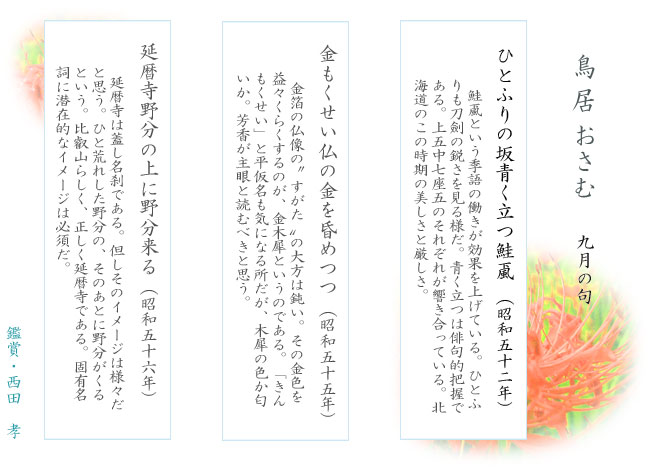 鳥居おさむ　九月の句
ひとふりの坂青く立つ鮭颪　（昭和五十二年）
鮭颪という季語の働きが効果を上げている。ひとふ
りも刀剣の鋭さを見る様だ。青く立つは俳句的把握で
ある。上五中七座五のそれぞれが響き合っている。北
海道のこの時期の美しさと厳しさ。
金もくせい仏の金を昏めつつ　（昭和五十五年）
金箔の仏像の〝すがた〟の大方は鈍い。その金色を
益々くらくするのが、金木犀というのである。「きん
もくせい」と平仮名も気になる所だが、木犀の色か匂
いか。芳香が主眼と読むべきと思う。
延暦寺野分の上に野分来る　（昭和五十六年）
延暦寺は蓋し名刹である。但しそのイメージは様々だ
と思う。ひと荒れした野分の、そのあとに野分がくる
という。比叡山らしく、正しく延暦寺である。固有名
詞に潜在的なイメージは必須だ。
鑑賞・西田　孝